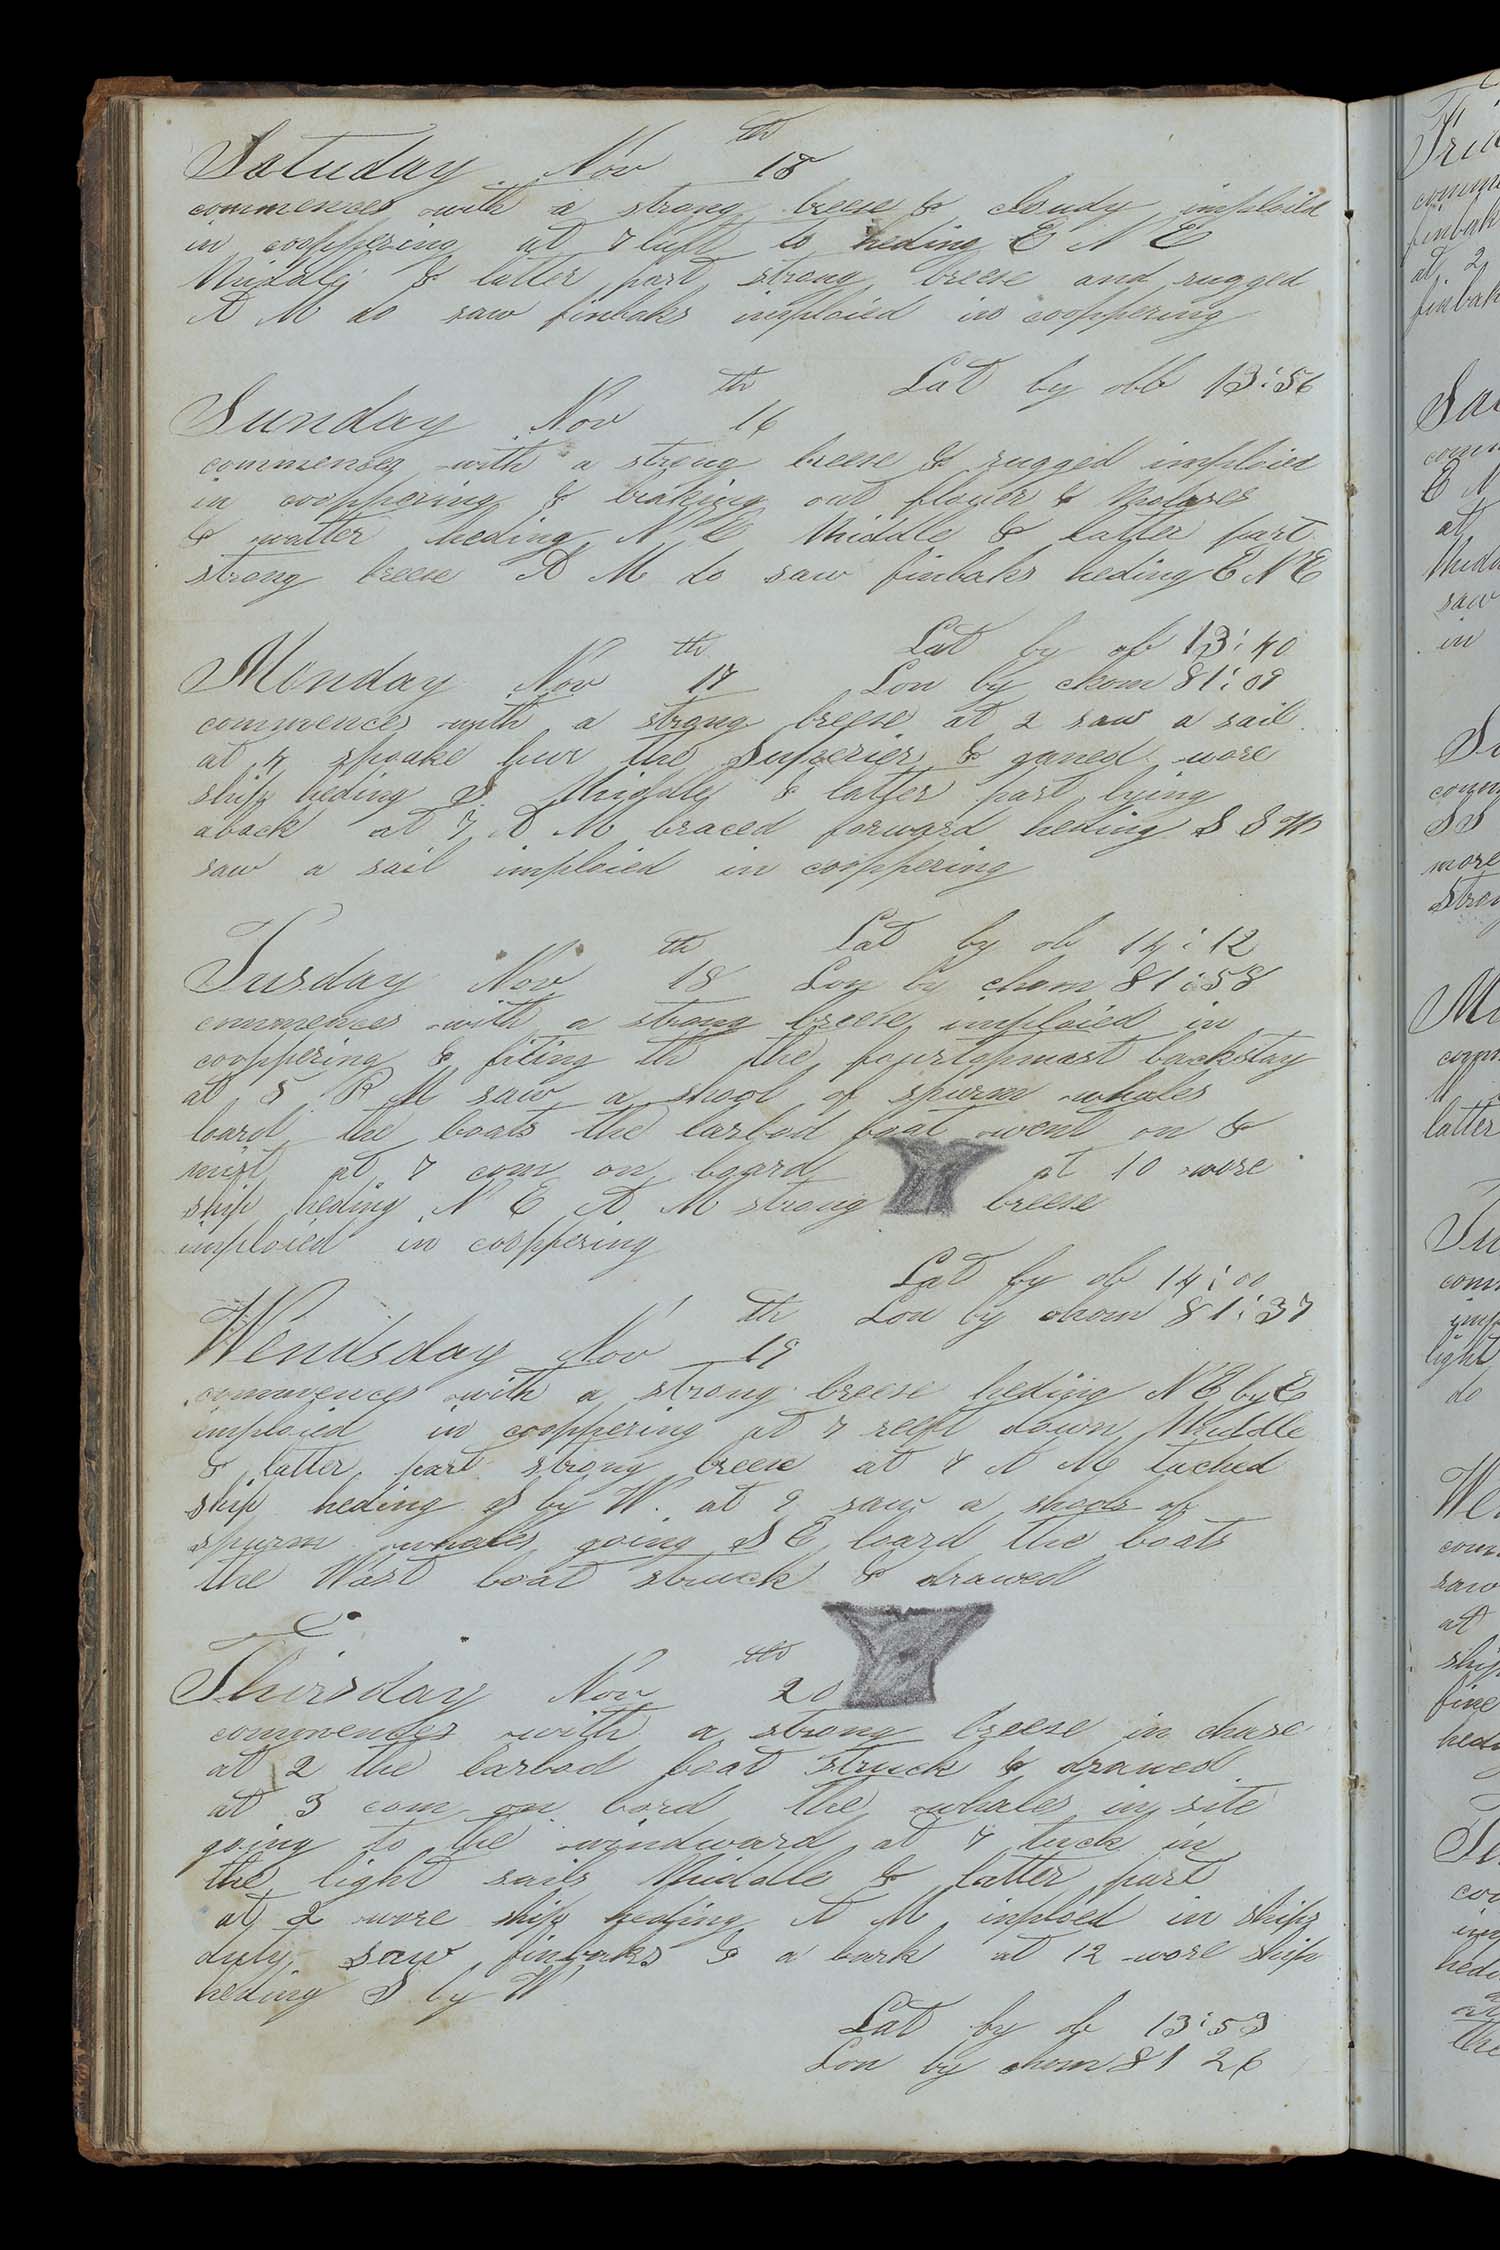 Satuday Nov 15th
commences with a strong breese & cloudy imploied
in cooppering at 7 luft to heding E N E
Middle & latter part strong breese and rugged
A M do saw finbaks imploied in cooppering
Lat by obb 13:56
Sunday Nov 16th
commences with a strong breese & rugged imploied
in cooppering & braking out flouer & Molases
& watter heding N E Middle & latter part
strong breese A M do saw finbaks heding E N E
Lat by ob 13:40
Monday Nov 17th Lon by chom 81:09
commences with a strong breese at 2 saw a sail
at 4 spoake hur the Superier & gamed wore
ship heding S Middle & latter part lying
aback at 7 A M braced forward heding S S W
saw a sail imploied in cooppering
Lat by ob 14:12
Tusday Nov 18th Lon by chom 81:58
commences with a strong breese imploied in
cooppering & fiting th the fourtopmast backstay
at 5 P M saw a shool of spurm whales
loard the boats the larbod boat went on &
mist at 7 com on board at 10 wore
ship heding N E A M strong breese
imploied in cooppering
Lat by ob 14:00
Wendsday Nov 19th Lon by chom 81:37
commences with a strong breese heding N E by E
imploied in cooppering at 7 reeft down Middle
& latter part strong breese at 7 A M tacked
ship heding S by W. at 9 saw a shools of
spurm whales going S E loard the boats
the Wast boat struck & drawed
Thirsday Nov 20th
commences with a strong breese in chase
at 2 the larbod boat struck & drawed
at 3 com on bord the whales in site
going to the windward at 7 tuck in
the light sails Middle & latter part
at 2 wore ship heding A M imploed in ships
duty saw finbaks & a bark at 12 wore ship
heding S by W
Lat by ob 13:53
Lon by chom 81 26